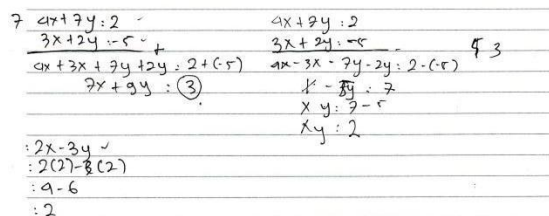 7 4x + 7y : 2
3x + 2y : -5 +
4x + 3x + 7y + 2y : 2 + (-5)
7x + 9y : 3
4x + 7y : 2
3x + 2y : -5 -
4x - 3x - 7y - 2y : 2 - (-5)
x - 5y : 7
x y : 7 - 5
x y : 2
3
: 2x - 3y
: 2(2) - 3(2)
: 4 - 6
: 2